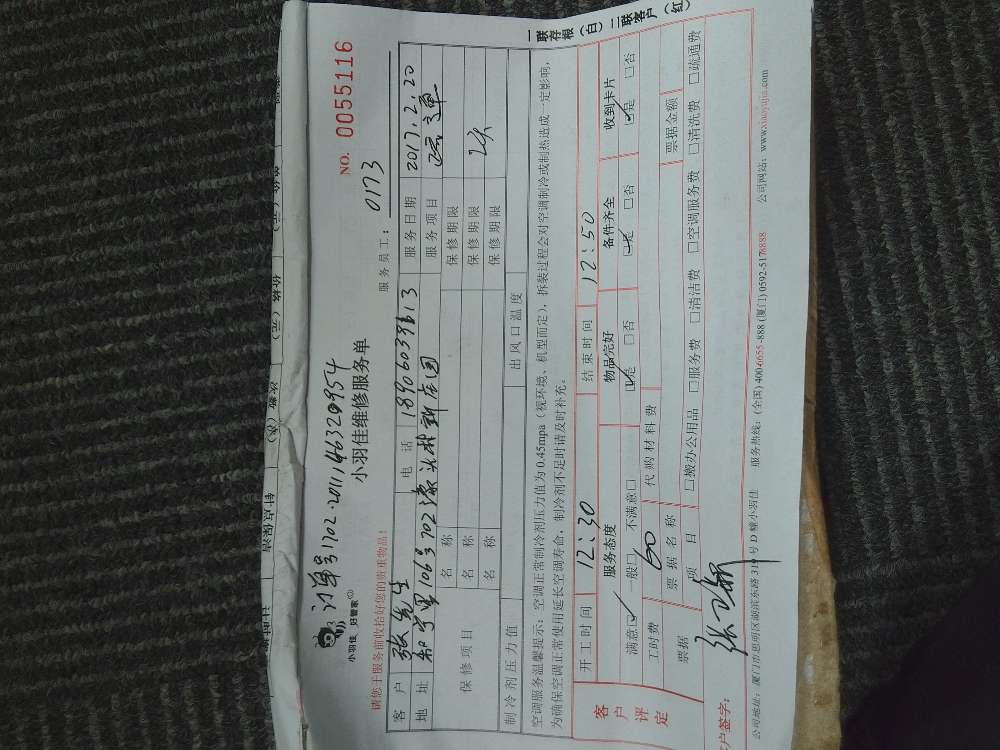 一联存根（白） 二联客户（红）
NO. 0055116
订单号1702·201114632
小羽佳 好管家
小羽佳维修服务单
请您于服务前收拾好您的贵重物品！
服务员工： 0173
客户 张先生 电话 18906039613 服务日期 2017.2.20
地址 106号702 服务项目
保修项目 名称 保修期限
名称 保修期限
名称 保修期限
制冷剂压力值 出风口温度
空调服务温馨提示：空调正常制冷剂压力值为0.45mpa（视环境、机型而定），拆装过程会对空调制冷或制热造成一定影响，
为确保空调正常使用延长空调寿命，制冷剂不足时请及时补充。
客户评定
开工时间 12:30 结束时间 12:50
服务态度 物品完好 备件齐全 收到卡片
满意☑ 一般□ 不满意□ ☑是 □否 ☑是 □否 ☑是 □否
工时费 60 代购材料费
票据 票据名称 票据金额
项目 □搬办公用品 □服务费 □清洁费 □空调服务费 □清洗费 □疏通费
客户签字：
公司地址：厦门市思明区湖滨东路319号D幢小羽佳 服务热线：(全国) 400-6655-888 (厦门) 0592-5178888 公司网站：www.xiaoyujia.com